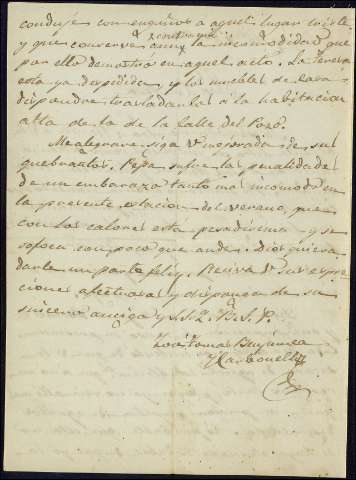 condujé con engaños a aquel lugar triste
y que conserve aun contra mi la incomodidad que
por ello demostro en aquel acto. La Teresa
esta ya despedida y los muebles de casa
dispondre trasladarlos á la habitacion
alta de la de la Calle del Pozo.
Me alegrare siga V. mejorada de sus
quebrantos. Pepa sufre las penalidades
de un embarazo tanto mas incomodo en
la presente estacion del verano, que
con los calores está pesadisima y se
sofoca con poco que ande. Dios quiera
darle un parto feliz. Reciva V. sus espre
ciones afectuosas y disponga de su
sincero amigo y S. S. Q. B. S. P.
José Tomas
y Carbonell